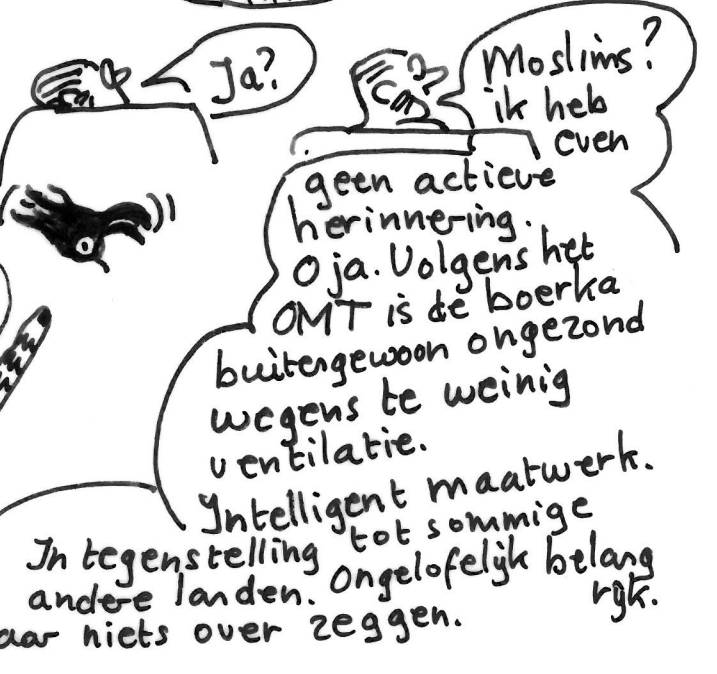 Ja?
Moslims?
ik heb
even
geen actieve
herinnering.
O ja. Volgens het
OMT is de boerka
buitengewoon ongezond
wegens te weinig
ventilatie.
Intelligent maatwerk.
In tegenstelling tot sommige
andere landen. Ongelofelijk belang
rijk.
aar niets over zeggen.